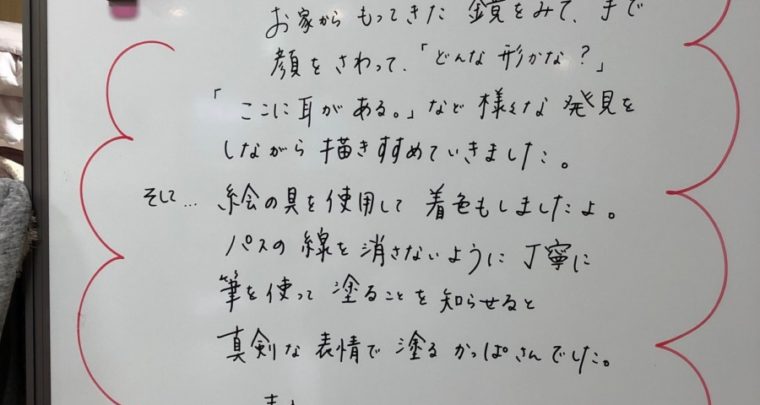 お家からもってきた 鏡をみて、手で
顔をさわって、「どんな形かな？」
「ここに耳がある。」など様々な発見を
しながら描きすすめていきました。
そして… 絵の具を使用して着色もしましたよ。
パスの線を消さないように丁寧に
筆を使って塗ることを知らせると
真剣な表情で塗るかっぱさんでした。